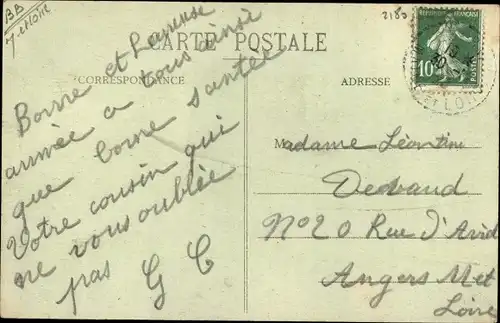 BB
2180
CARTE POSTALE
CORRESPONDANCE
ADRESSE
RÉPUBLIQUE FRANÇAISE
10
Bonne et
année a tous ainsi
que bonne santée
Votre cousin qui
ne vous oublée
pas G C
Madame Léontine
N° 20 Rue d'
Angers M et
Loire